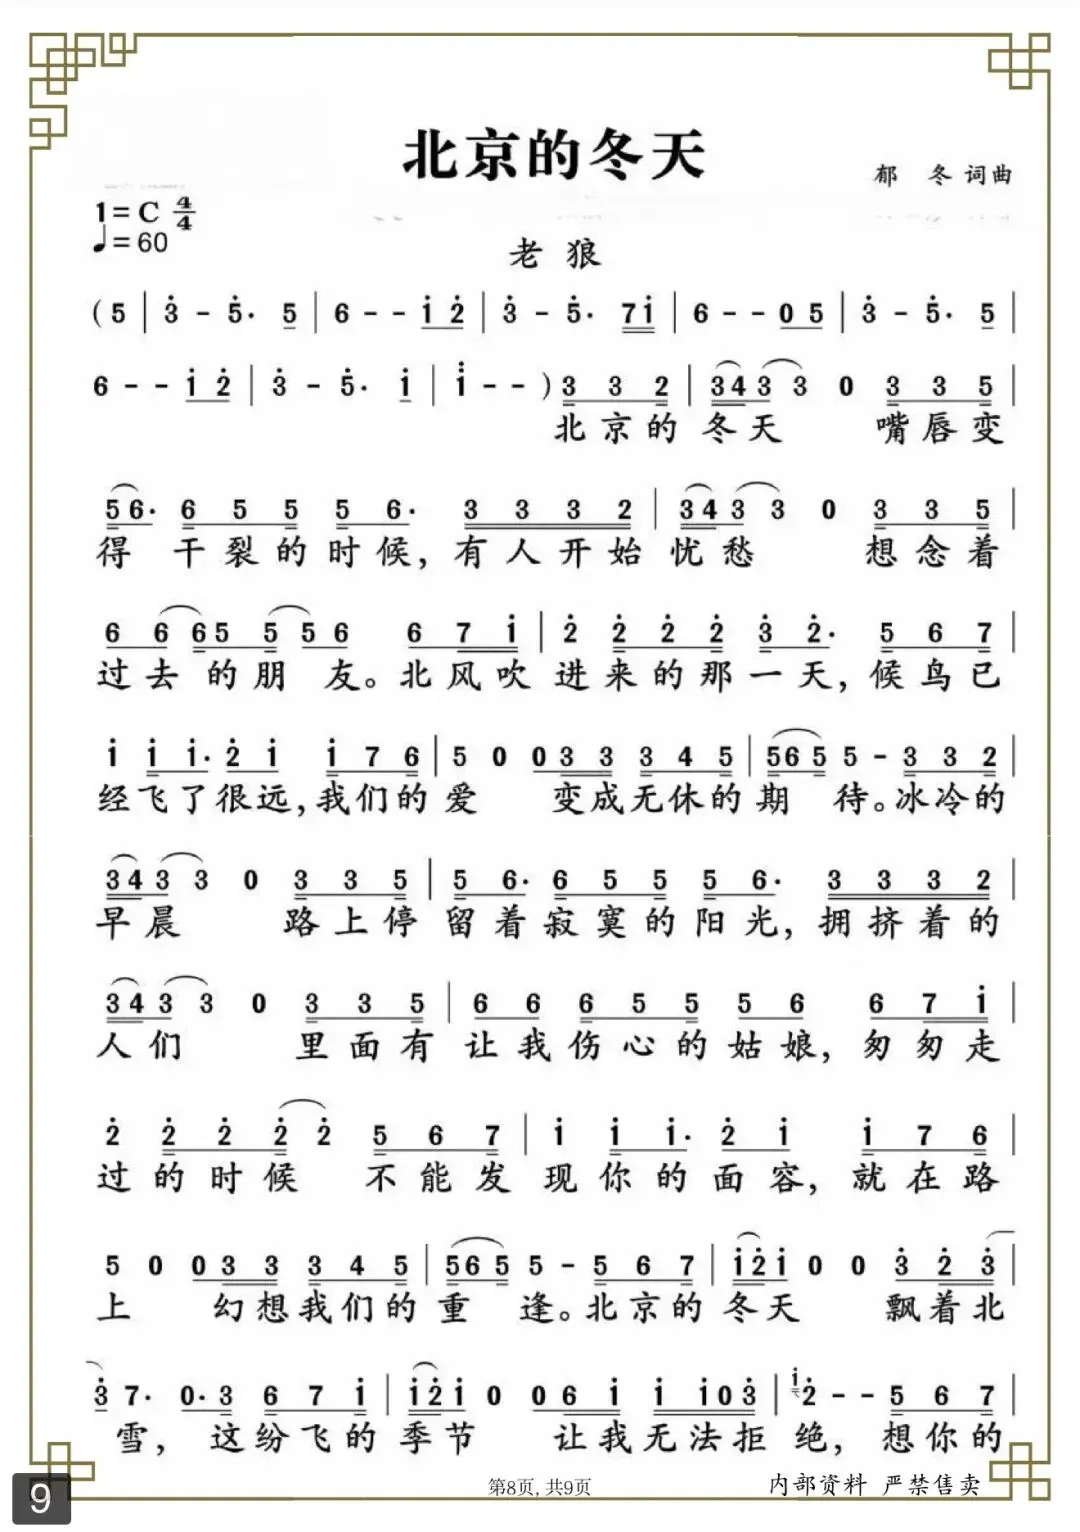 北京的冬天
郁 冬 词曲
1= C 4/4
♩= 60
老 狼
( 5 | 3̇ - 5̇. 5 | 6 - - 1̇ 2̇ | 3̇ - 5̇. 7 1̇ | 6 - - 0 5 | 3̇ - 5̇. 5 |
6 - - 1̇ 2̇ | 3̇ - 5̇. 1̇ | 1̇ - - ) 3 3 2 | 3 4 3 3 0 3 3 5 |
北 京 的 冬 天 嘴 唇 变
5 6. 6 5 5 5 6. 3 3 3 2 | 3 4 3 3 0 3 3 5 |
得 干 裂 的 时 候, 有 人 开 始 忧 愁 想 念 着
6 6 6 5 5 5 6 6 7 1̇ | 2̇ 2̇ 2̇ 2̇ 3̇ 2̇. 5 6 7 |
过 去 的 朋 友。北 风 吹 进 来 的 那 一 天, 候 鸟 已
1̇ 1̇ 1̇. 2̇ 1̇ 1̇ 7 6 | 5 0 0 3 3 3 4 5 | 5 6 5 5 - 3 3 2 |
经 飞 了 很 远, 我 们 的 爱 变 成 无 休 的 期 待。冰 冷 的
3 4 3 3 0 3 3 5 | 5 6. 6 5 5 5 6. 3 3 3 2 |
早 晨 路 上 停 留 着 寂 寞 的 阳 光, 拥 挤 着 的
3 4 3 3 0 3 3 5 | 6 6 6 5 5 5 6 6 7 1̇ |
人 们 里 面 有 让 我 伤 心 的 姑 娘, 匆 匆 走
2̇ 2̇ 2̇ 2̇ 2̇ 5 6 7 | 1̇ 1̇ 1̇. 2̇ 1̇ 1̇ 7 6 |
过 的 时 候 不 能 发 现 你 的 面 容, 就 在 路
5 0 0 3 3 3 4 5 | 5 6 5 5 - 5 6 7 | 1̇ 2̇ 1̇ 0 0 3̇ 2̇ 3̇ |
上 幻 想 我 们 的 重 逢。北 京 的 冬 天 飘 着 北
3̇ 7. 0. 3 6 7 1̇ | 1̇ 2̇ 1̇ 0 0 6 1̇ 1̇ 1̇ 0 3̇ | 1̇ 2̇ - - 5 6 7 |
雪, 这 纷 飞 的 季 节 让 我 无 法 拒 绝, 想 你 的
第8页, 共9页
内部资料 严禁售卖
9